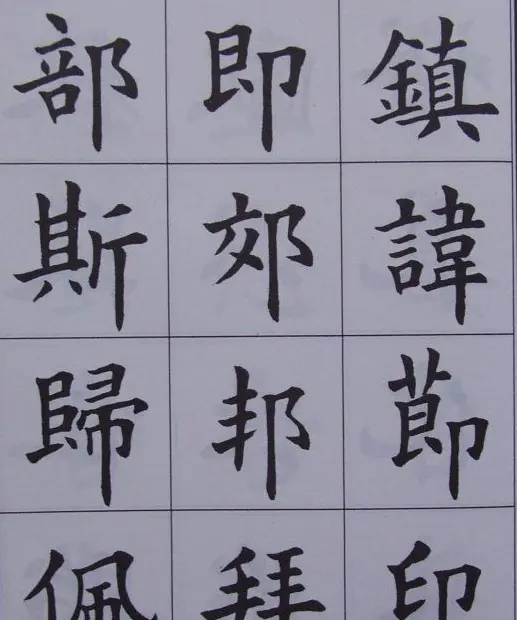 鎮諱節印
即郊邦拜
部斯歸佩